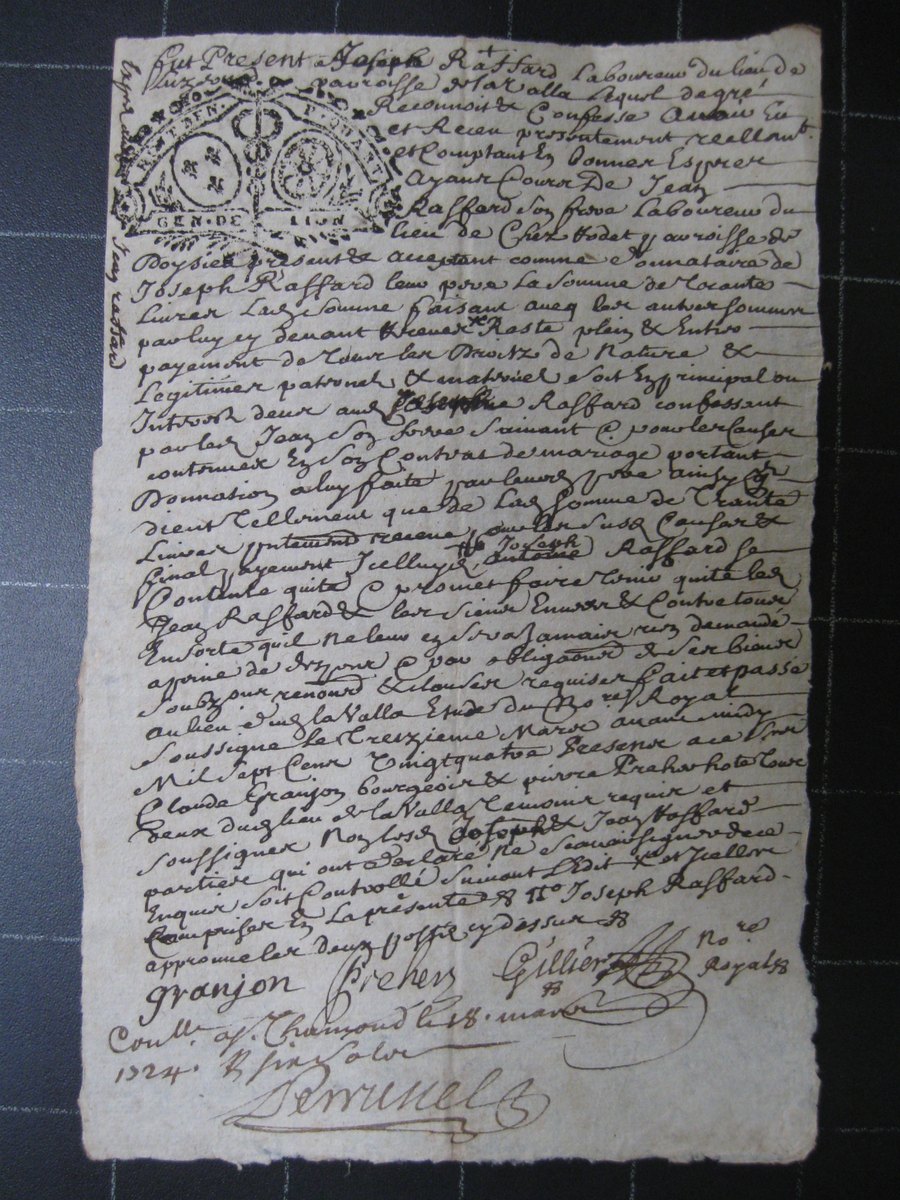 fut Present Joseph Raffard Laboureur du lieu de
paroisse de laValla lequel de gré
Reconnoit & Confesse Avoir Eu
et Receu presentement reellemt.
et Comptant En bonnes Especes
Ayans Cours De Jean
Raffard Son frere Laboureur du
lieu de Chez Hodet paroisse de
GEN·DE LION
Doysieu present & acceptant comme donnataire de
Joseph Raffard leur pere La Somme de Trante
Livres Lad Somme faisant avec les autres sommes
par luy cy devant receues Reste plein & Entier
payement de tous les Droitz de Nature &
Legitimes paternel & maternel soit En principal ou
Interest deux aud Raffard confessent
par led Jean Son frere suivant & pour les Causes
contenues En Son Contrat de mariage portant
Donnation a luy faite par leurd pere ainsy qu
dient Tellement que de Lad Somme de Trante
Livres presentement receue pour les susd Causes &
final payement Icelluyd Antoine Joseph Raffard Se
Contente quite & promet faire Tenir quite led
Jean Raffard & les siens Envers & Contre tous
En sorte qu'il ne leur en sera Jamais rien demandé
a peine de & par obligaons de Ses biens
Soubz renons & clauses requises fait et passe
au lieu dud laValla Etude du Nore. Royal
Soussigne Le Treizieme Mars avant midy
Mil Sept Cens Vingt quatre Presens a ce Srs
Claude Granjon bourgeois & pierre Preher hote Tous
deux dud lieu de laValla Temoins requis et
Soussignes Non lesd Joseph & Jean Raffard
parties qui ont declaré ne Scavoir signer de ce
Enquis soit Controllé suivant L'Edit et Icelles
Comprises En La presente & Joseph Raffard
approuve les deux cy dessus
granjon Preher Gillier Nore.
Royal
Conlle. a St. Chamond le 18. mars
1724. R six sols
Perrussel
Jean raffard